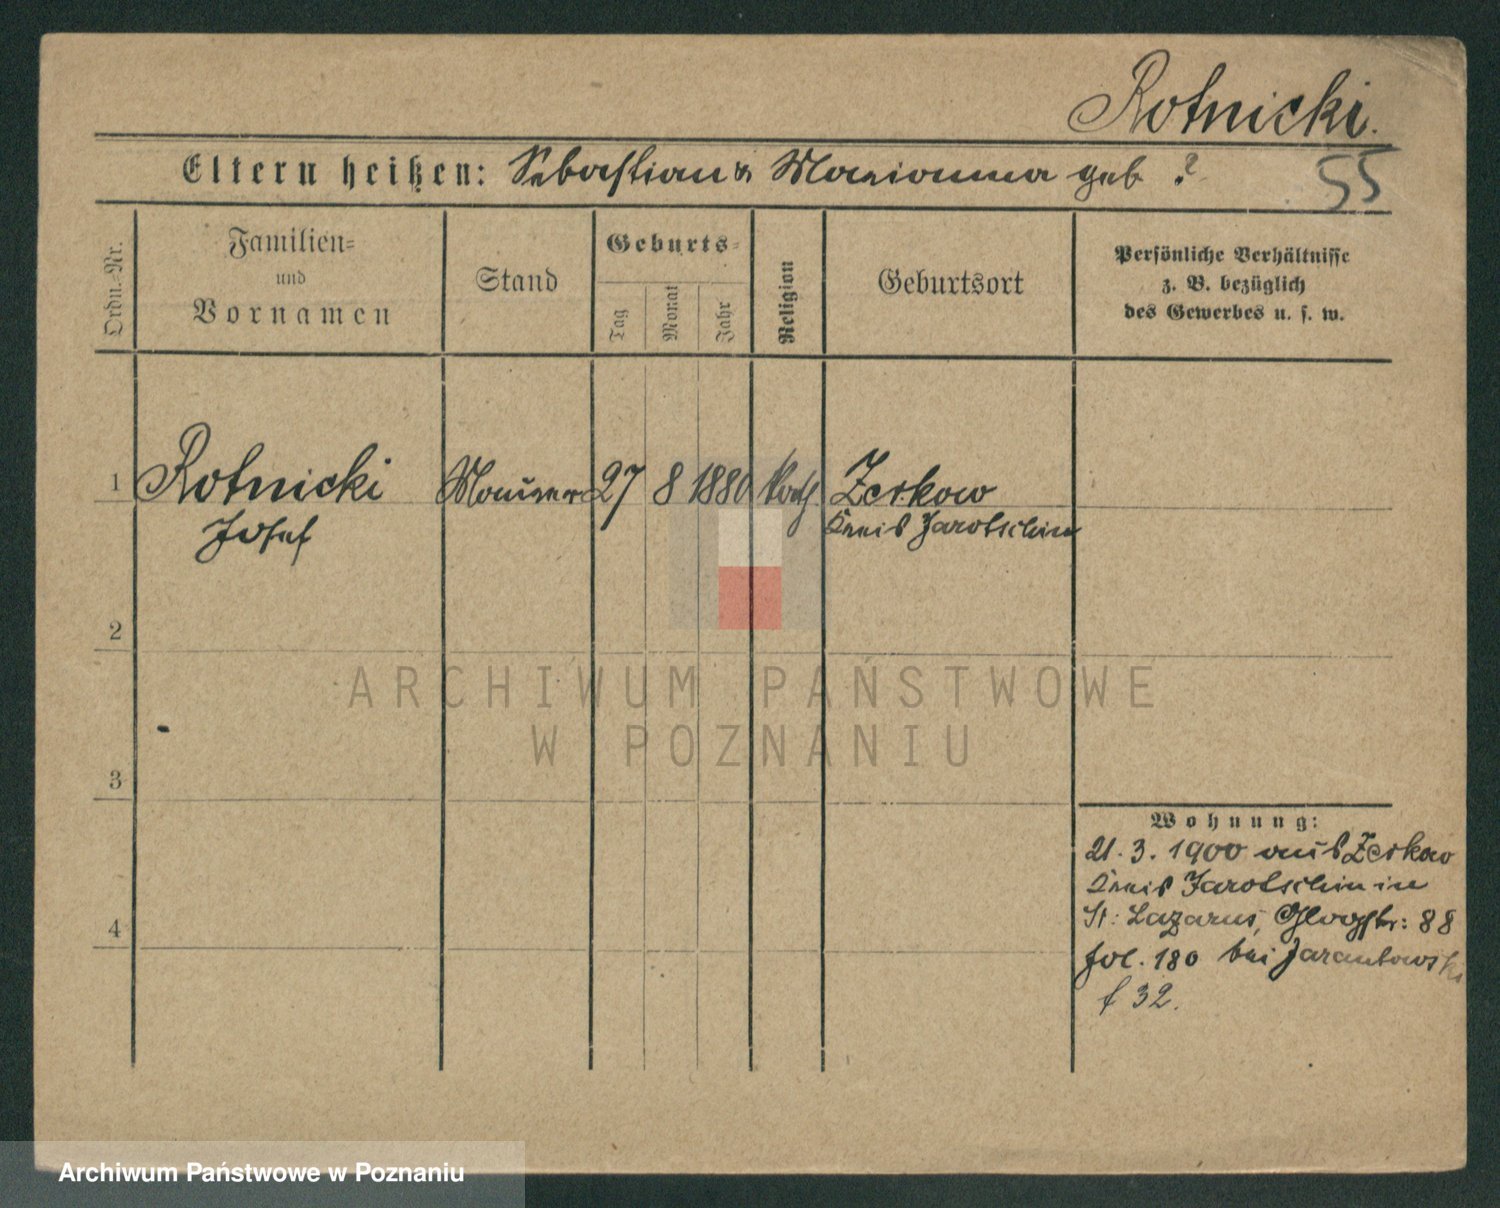 Rotnicki.
Eltern heißen: Sebastian & Marianna geb ?
55
Ordn.-Nr.
Familien=
und
Vornamen
Stand
Geburts=
Tag
Monat
Jahr
Religion
Geburtsort
Persönliche Verhältnisse
z. B. bezüglich
des Gewerbes u. s. w.
1 Rotnicki Maurer 27 8 1880 kath. Zerkow
Josef Kreis Jarotschin
2
3
4
Wohnung:
21. 3. 1900 aus Zerkow
Kreis Jarotschin in
St: Lazarus, Glogstr: 88
fol. 180 bei Jarantowski
f 32.
ARCHIWUM PAŃSTWOWE
W POZNANIU
Archiwum Państwowe w Poznaniu